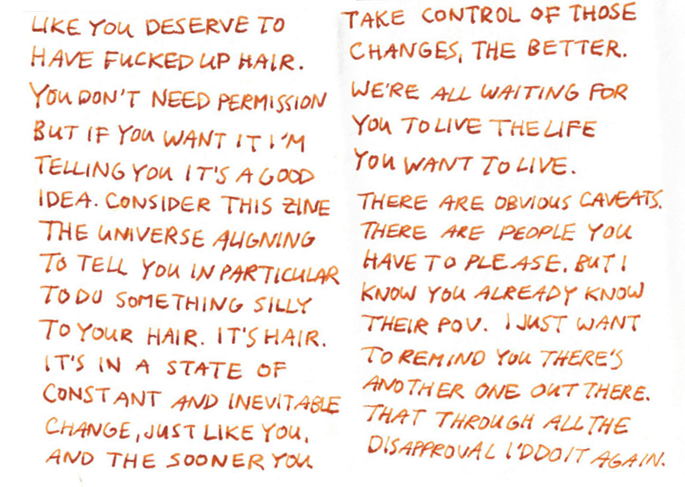 LIKE YOU DESERVE TO
HAVE FUCKED UP HAIR.
YOU DON'T NEED PERMISSION
BUT IF YOU WANT IT I'M
TELLING YOU IT'S A GOOD
IDEA. CONSIDER THIS ZINE
THE UNIVERSE ALIGNING
TO TELL YOU IN PARTICULAR
TO DO SOMETHING SILLY
TO YOUR HAIR. IT'S HAIR.
IT'S IN A STATE OF
CONSTANT AND INEVITABLE
CHANGE, JUST LIKE YOU,
AND THE SOONER YOU
TAKE CONTROL OF THOSE
CHANGES, THE BETTER.
WE'RE ALL WAITING FOR
YOU TO LIVE THE LIFE
YOU WANT TO LIVE.
THERE ARE OBVIOUS CAVEATS.
THERE ARE PEOPLE YOU
HAVE TO PLEASE. BUT I
KNOW YOU ALREADY KNOW
THEIR POV. I JUST WANT
TO REMIND YOU THERE'S
ANOTHER ONE OUT THERE.
THAT THROUGH ALL THE
DISAPPROVAL I'D DO IT AGAIN.